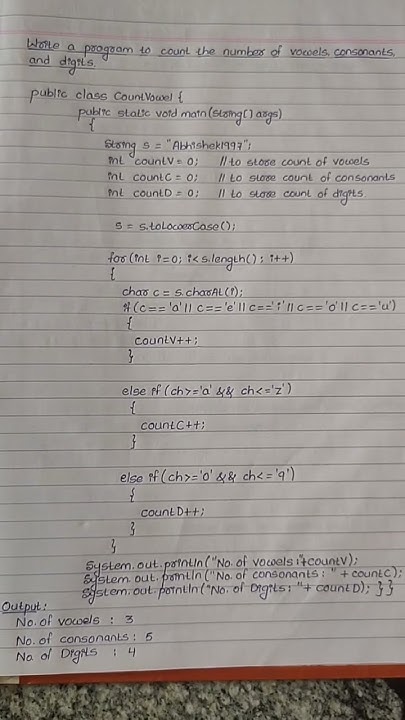 Write a program to count the number of vowels, consonants,
and digits.
public class CountVowel {
public static void main(String[] args)
{
String s = "Abhishek1997";
int countV = 0; // to store count of vowels
int countC = 0; // to store count of consonants
int countD = 0; // to store count of digits.
s = s.toLowerCase();
for(int i=0; i<s.length(); i++)
{
char c = s.charAt(i);
if (c=='a' || c=='e' || c=='i' || c=='o' || c=='u')
{
countV++;
}
else if (ch>='a' && ch<='z')
{
countC++;
}
else if (ch>='0' && ch<='9')
{
countD++;
}
}
System.out.println("No. of vowels:"+countV);
System.out.println("No. of consonants: " + countC);
System.out.println("No. of Digits: "+ countD); } }
Output:
No. of vowels : 3
No. of consonants : 5
No. of Digits : 4